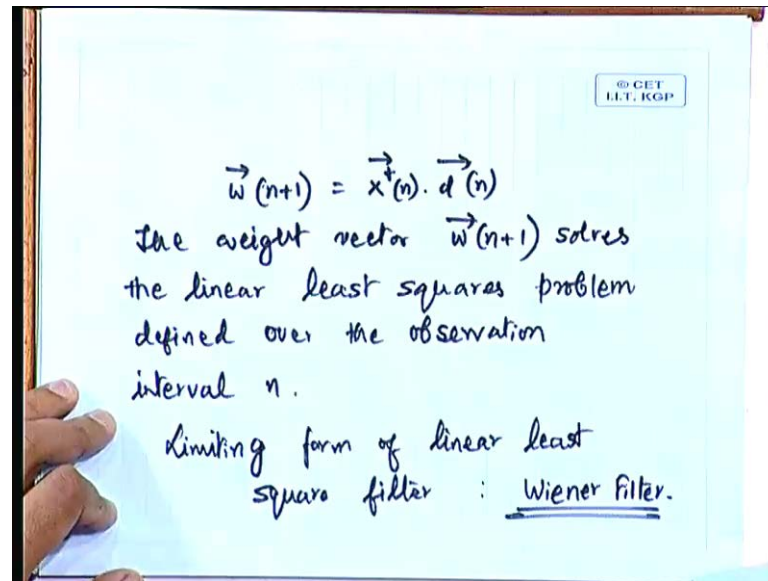 © CET
I.I.T. KGP
w⃗ (n+1) = x⃗⁺(n). d⃗ (n)
The weight vector w⃗(n+1) solves
the linear least squares problem
defined over the observation
interval n.
Limiting form of linear least
square filter : Wiener Filter.